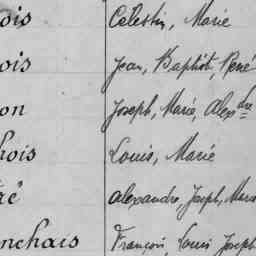 ois Célestin, Marie
ois Jean, Baptist, René
on Joseph, Marie, Alexdre
hois Louis, Marie
ré Alexandre, Joseph, Marie
nchais François, Louis Joseph